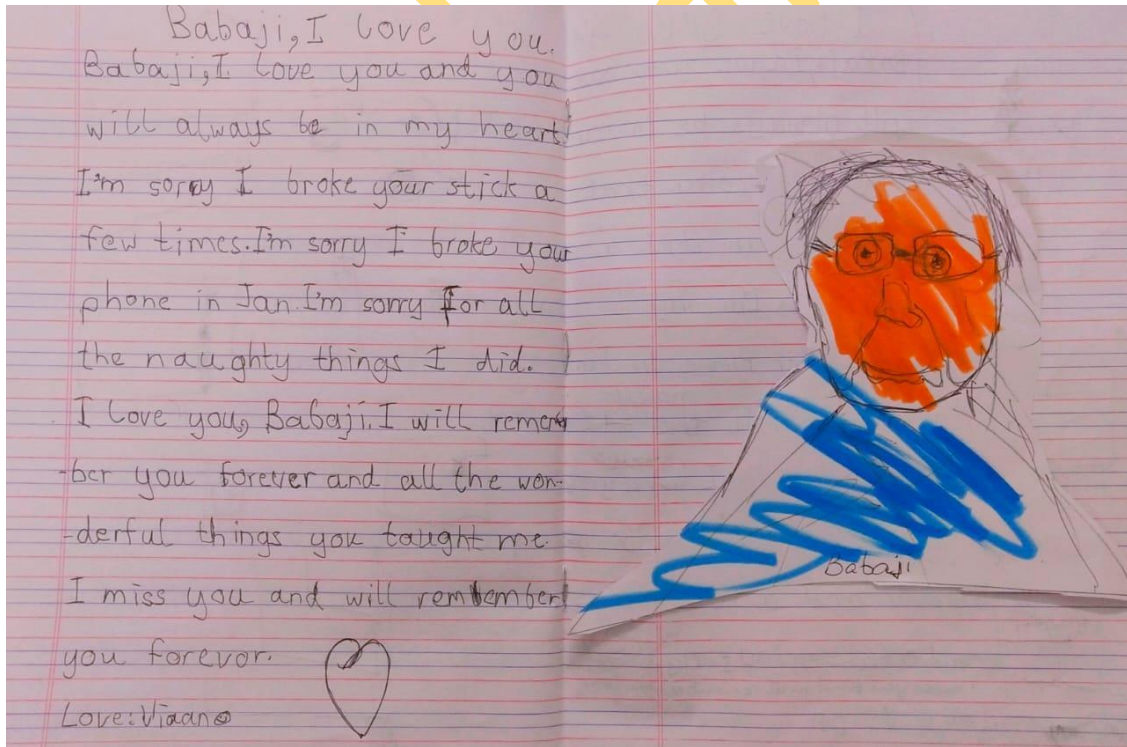 Babaji, I love you.
Babaji, I love you and you
will always be in my heart
I'm sorry I broke your stick a
few times. I'm sorry I broke your
phone in Jan. I'm sorry for all
the naughty things I did.
I love you, Babaji. I will remem
-ber you forever and all the won-
-derful things you taught me.
I miss you and will remember
you forevor.
Love: Viaan
Babaji